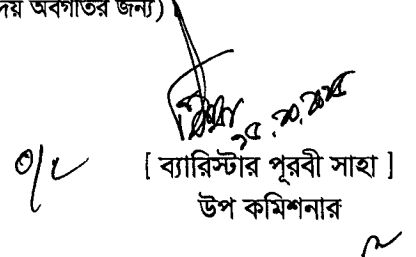 দয় অবগতির জন্য)
[ ব্যারিস্টার পূরবী সাহা ]
উপ কমিশনার